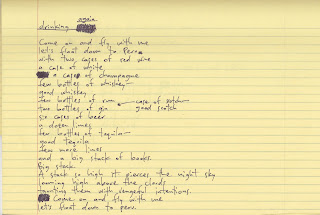 again
drinking
Come on and fly with me
let's float down to Peru
with two cases of red wine
a case of white,
a case of champagne
few bottles of whiskey
good whiskey
few bottles of rum case of scotch
two bottles of gin good scotch
six cases of beer
a dozen limes
few bottles of tequila
good tequila
few more limes
and a big stack of books.
Big stack.
A stack so high it pierces the night sky
looming high above the clouds
taunting them with vengeful intentions.
Come on and fly with me
let's float down to peru.